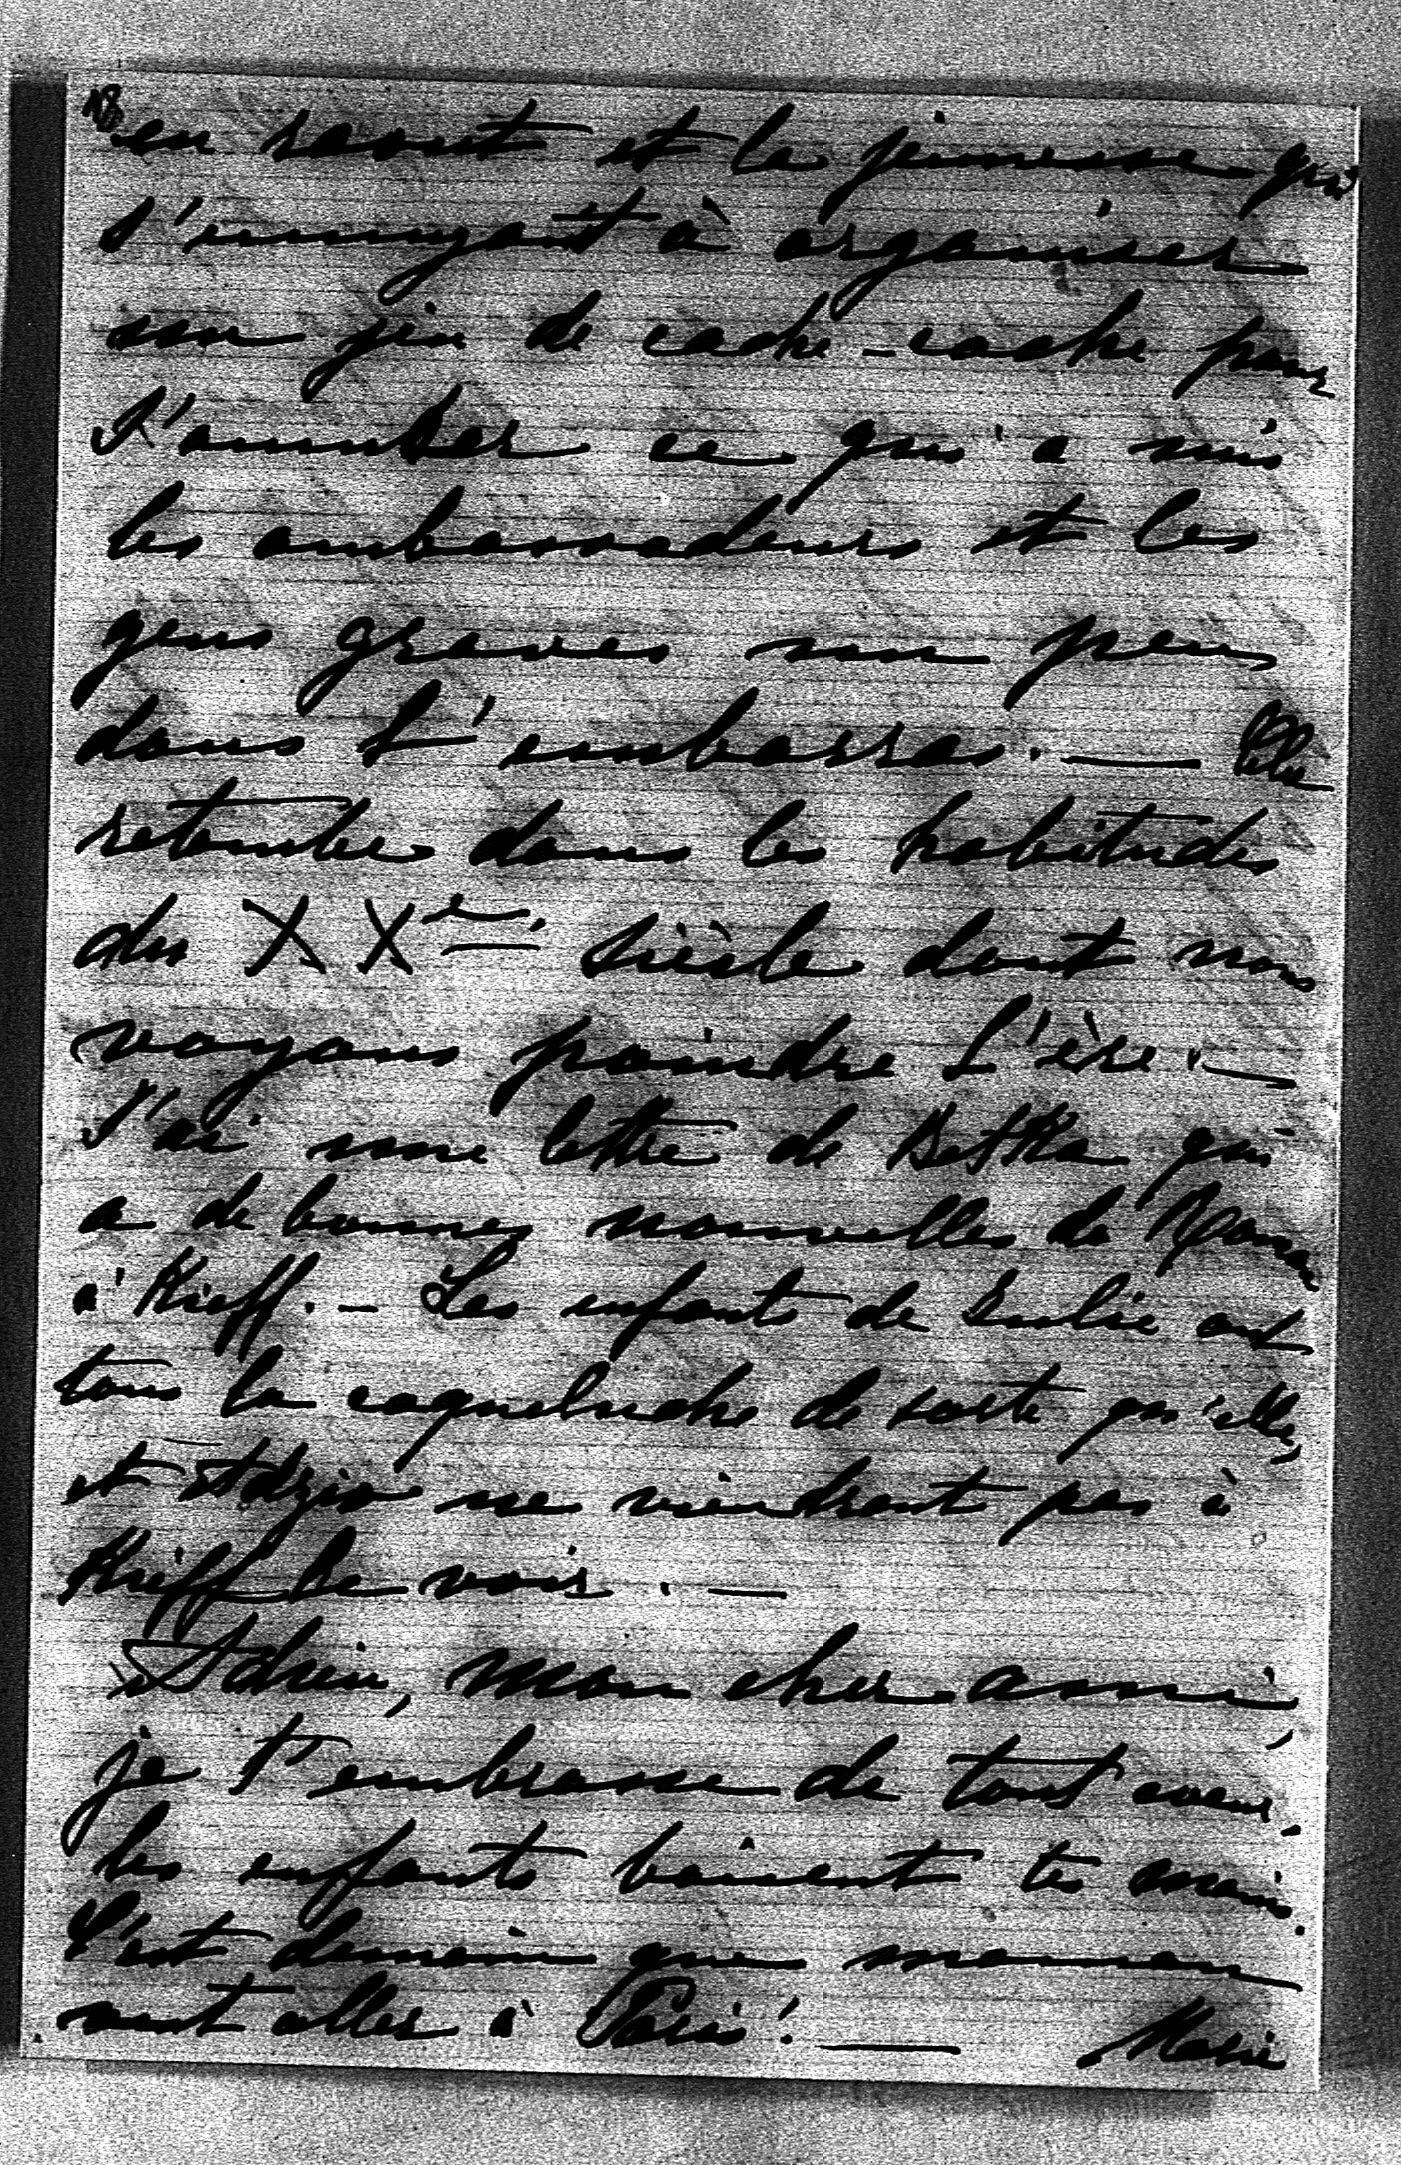 en raout et la jeunesse qui
s'ennuyant à organiser
un jeu de cache-cache pour
s'amuser ce qui a mis
les ambassadeurs et les
gens graves un peu
dans l'embarras. —
retombe dans les habitudes
du XXe siècle dont nous
voyons poindre l'ère. —
J'ai une lettre de Betka qui
a de bonnes nouvelles de Roman
à Kieff. — Les enfants de Julie ont
tous la coqueluche de sorte qu'elle
et Adzio ne viendront pas à
Kieff le voir. —
Adieu, mon cher ami,
je t'embrasse de tout coeur.
les enfants baisent tes mains.
C'est demain que maman
veut aller à Paris! — Marie